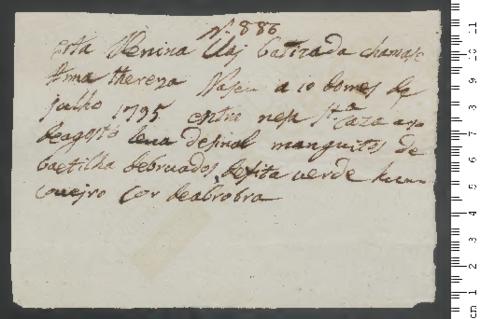 N. 886
esta Menina Vaj batizada chamase
Anna thereza Naseu a 10 do mes de
Julho 1795 entru nesta Sta Caza a 30
de agosto leva de sinal manguitos de
baetilha debruados de fita verde hum
coueiro cor de abobra